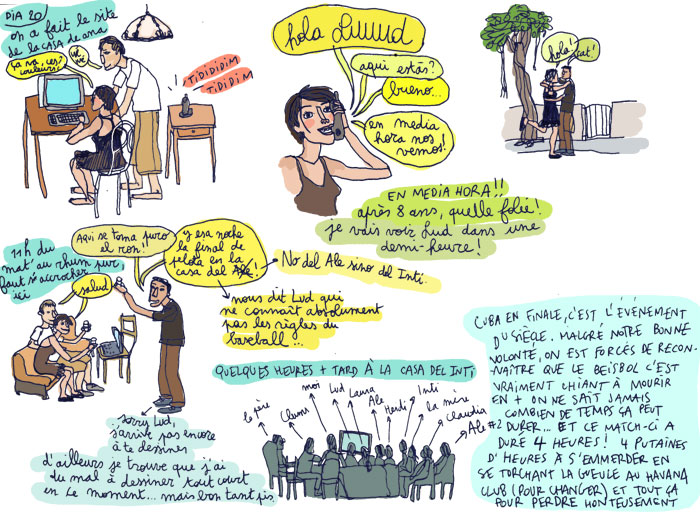 DIA 20
on a fait le site
de la CASA de ana
ça va, ces
couleurs?
TiDiDiDiM
TiDiDiM
hola Luuuud
aqui estás?
bueno...
en media
hora nos
vemos!
hola!
cat!
EN MEDIA HORA!!
après 8 ans, quelle folie!
je vais voir Lud dans une
demi-heure!
11h du
mat' au rhum pur
faut s'accrocher
ici
Aqui se toma puro
el ron!
y esa noche
la final de
pelota en la
casa del Ale!
salud
No del Ale sino del Inti.
nous dit Lud qui
ne connaît absolument
pas les règles du
baseball...
sorry Lud,
j'arrive pas encore
à te dessiner
d'ailleurs je trouve que j'ai
du mal à dessiner tout court
en ce moment... mais bon tant pis.
QUELQUES HEURES + TARD À LA CASA DEL INTI
le père
Chums
moi
Lud
Laura
Ale
Heidi
Inti
la mère
Claudia
Ale #2
CUBA EN FINALE, C'EST L'ÉVÉNEMENT
DU SIÈCLE. MALGRÉ NOTRE BONNE
VOLONTÉ, ON EST FORCÉS DE RECON-
NAÎTRE QUE LE BEISBOL C'EST
VRAIMENT CHIANT À MOURIR
EN + ON NE SAIT JAMAIS
COMBIEN DE TEMPS ÇA PEUT
DURER... ET CE MATCH-CI A
DURÉ 4 HEURES! 4 PUTAINES
D'HEURES À S'EMMERDER EN
SE TORCHANT LA GUEULE AU HAVANA
CLUB (POUR CHANGER) ET TOUT ÇA
POUR PERDRE HONTEUSEMENT